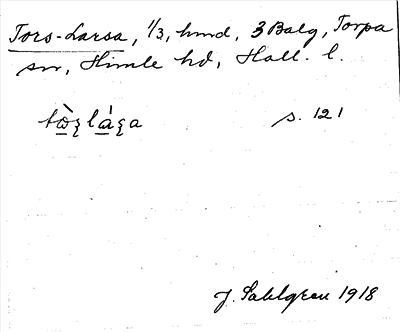 Tors-Larsa, 1/3, hmd, 3 Balg, Torpa
sn, Himle hd, Hall. l.
s. 121
J. Sahlgren 1918